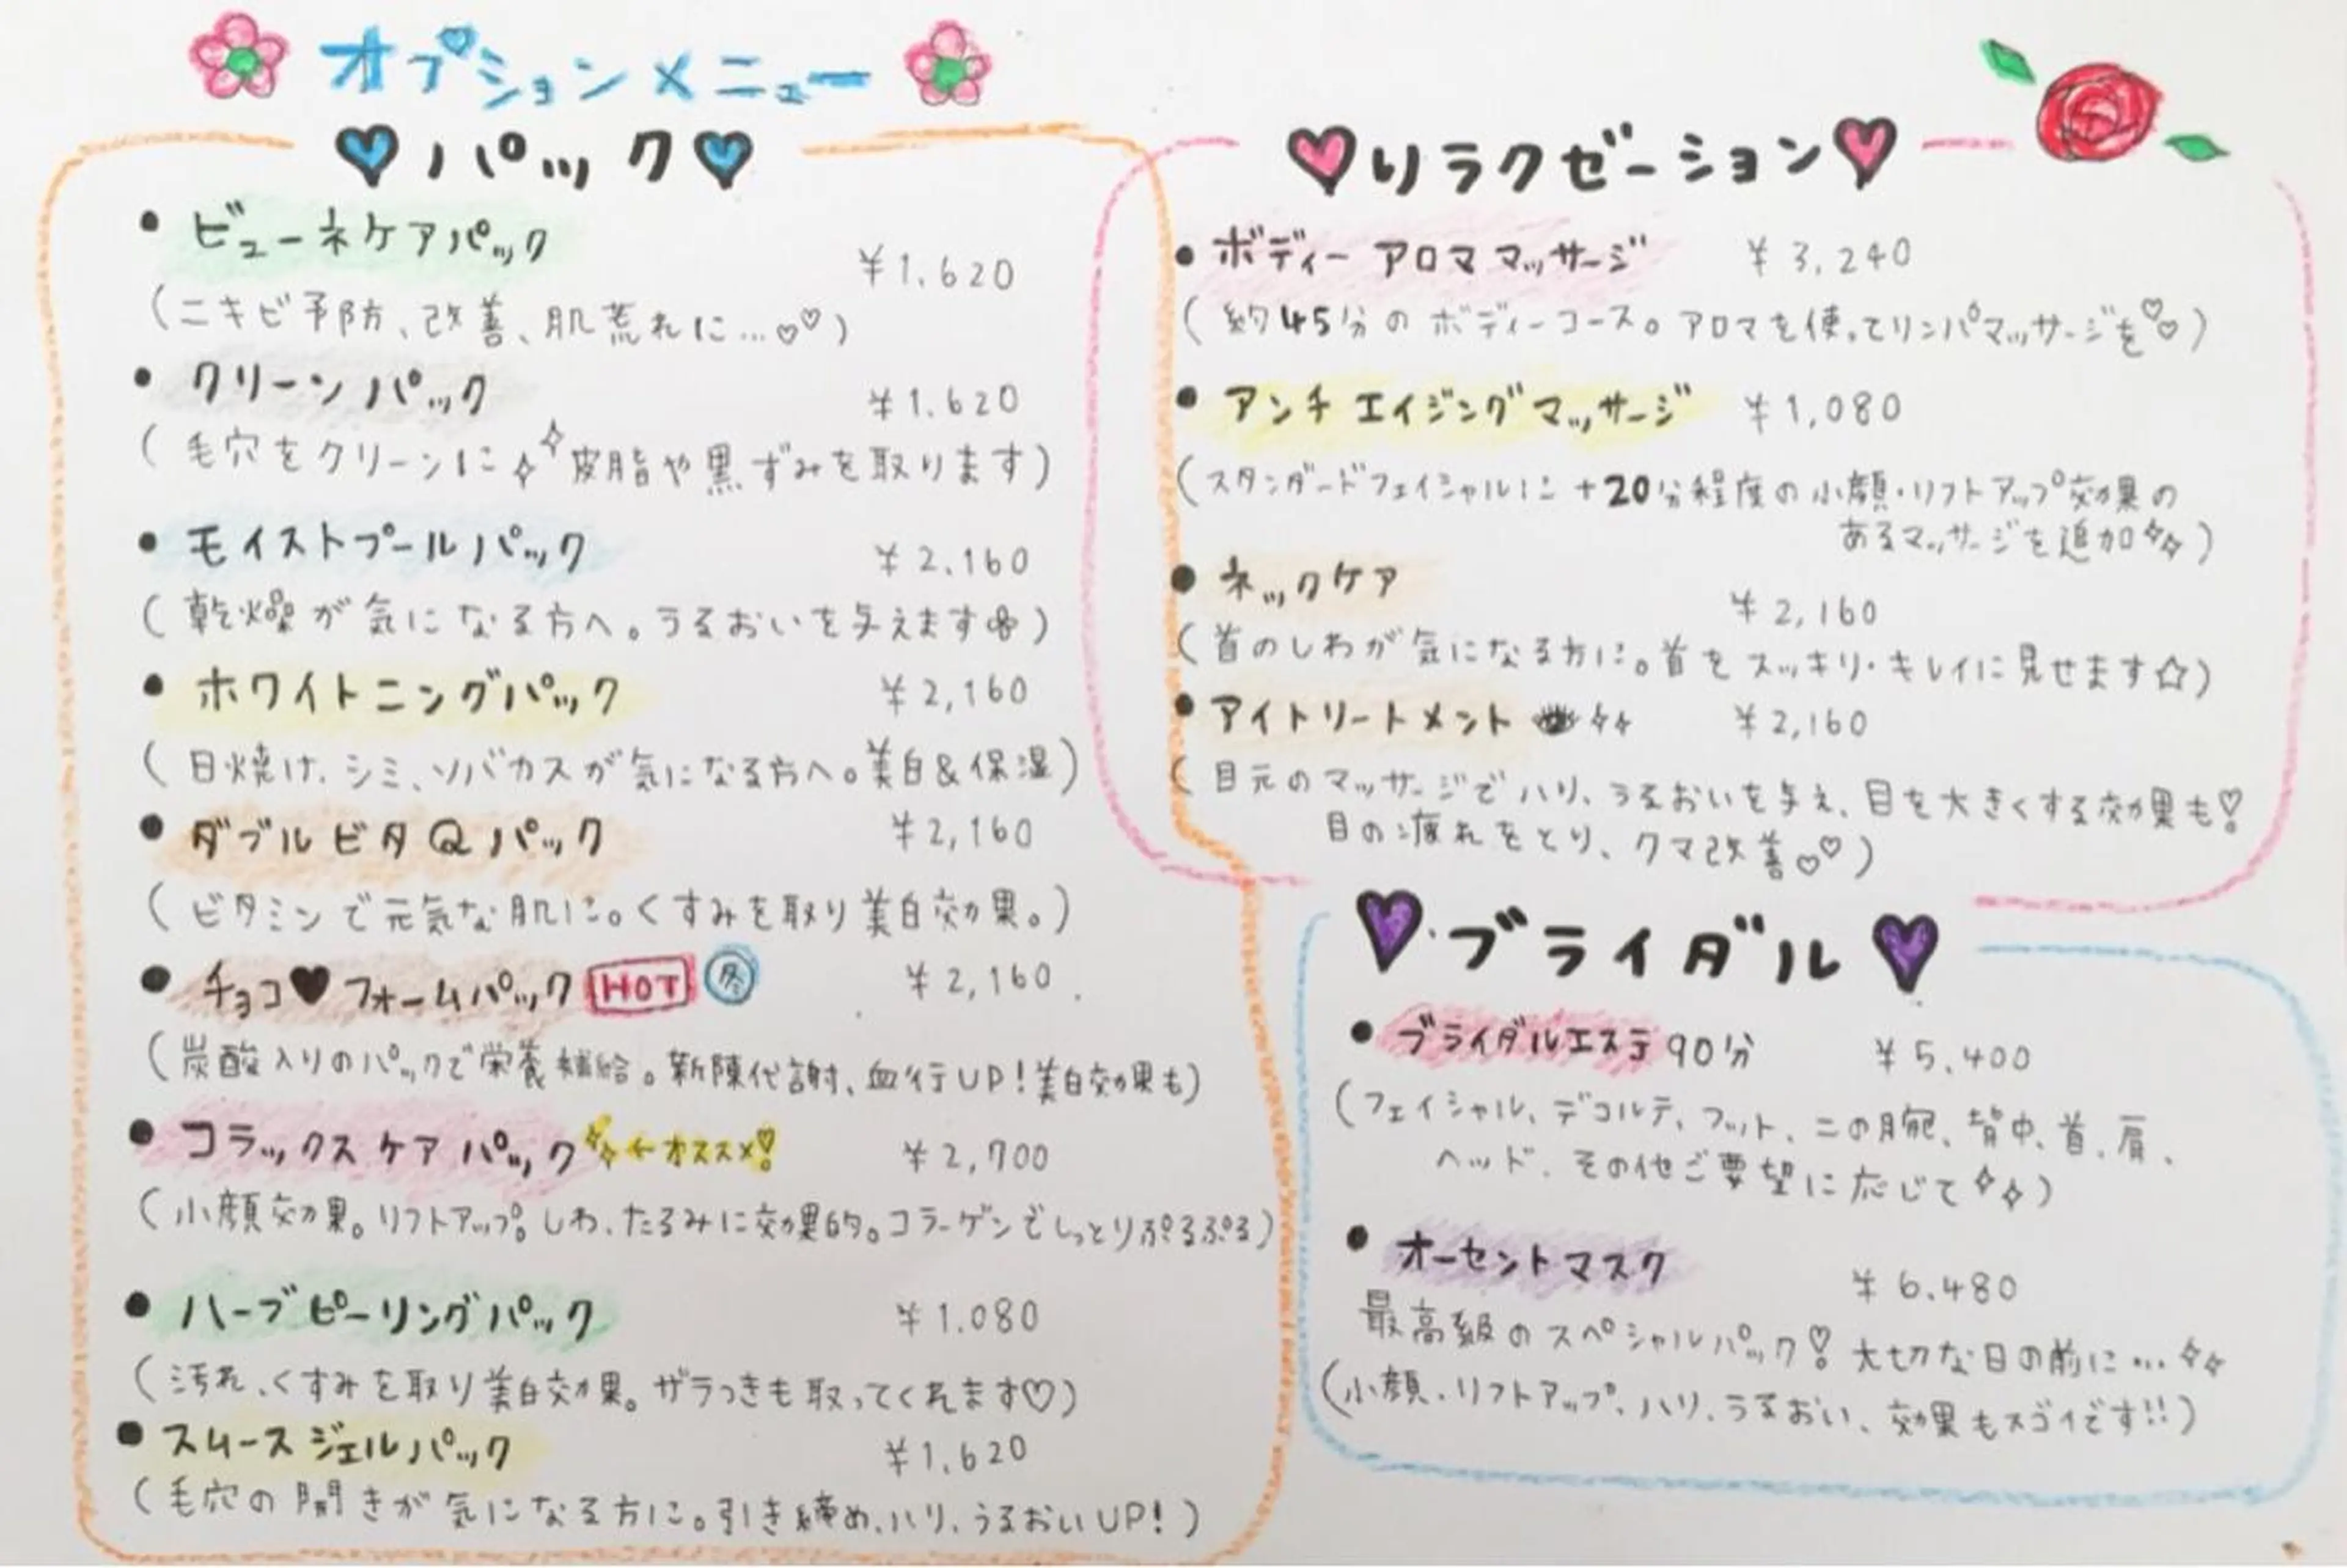 オプションメニュー
パック
・ビューネケアパック
¥1.620
(ニキビ予防、改善、肌荒れに…♡♡)
・クリーンパック
¥1.620
(毛穴をクリーンに 皮脂や黒ずみを取ります)
・モイストプールパック
¥2.160
(乾燥が気になる方へ。うるおいを与えます)
・ホワイトニングパック
¥2,160
(日焼け、シミ、ソバカスが気になる方へ。美白&保湿)
・ダブルビタQパック
¥2,160
(ビタミンで元気な肌に。くすみを取り美白効果。)
・チョコ♥フォームパック HOT 冬
¥2,160
(炭酸入りのパックで栄養補給。新陳代謝、血行UP!美白効果も)
・コラックスケアパック ←オススメ!
¥2,700
(小顔効果。リフトアップ。しわ、たるみに効果的。コラーゲンでしっとりぷるぷる)
・ハーブピーリングパック
¥1.080
(汚れ、くすみを取り美白効果。ザラつきも取ってくれます♡)
・スムースジェルパック
¥1,620
(毛穴の開きが気になる方に。引き締め、ハリ、うるおいUP!)
リラクゼーション
・ボディーアロママッサージ ¥3,240
(約45分のボディーコース。アロマを使ってリンパマッサージを♡♡)
・アンチエイジングマッサージ ¥1,080
(スタンダードフェイシャルに+20分程度の小顔・リフトアップ効果の
あるマッサージを追加)
・ネックケア
¥2,160
(首のしわが気になる方に。首をスッキリ・キレイに見せます☆)
・アイトリートメント ¥2,160
(目元のマッサージでハリ、うるおいを与え、目を大きくする効果も!
目の疲れをとり、クマ改善♡♡)
ブライダル
・ブライダルエステ90分 ¥5,400
(フェイシャル、デコルテ、フット、二の腕、背中、首、肩、
ヘッド、その他ご要望に応じて)
・オーセントマスク
¥6.480
最高級のスペシャルパック!大切な日の前に…
(小顔、リフトアップ、ハリ、うるおい、効果もスゴイです!!)